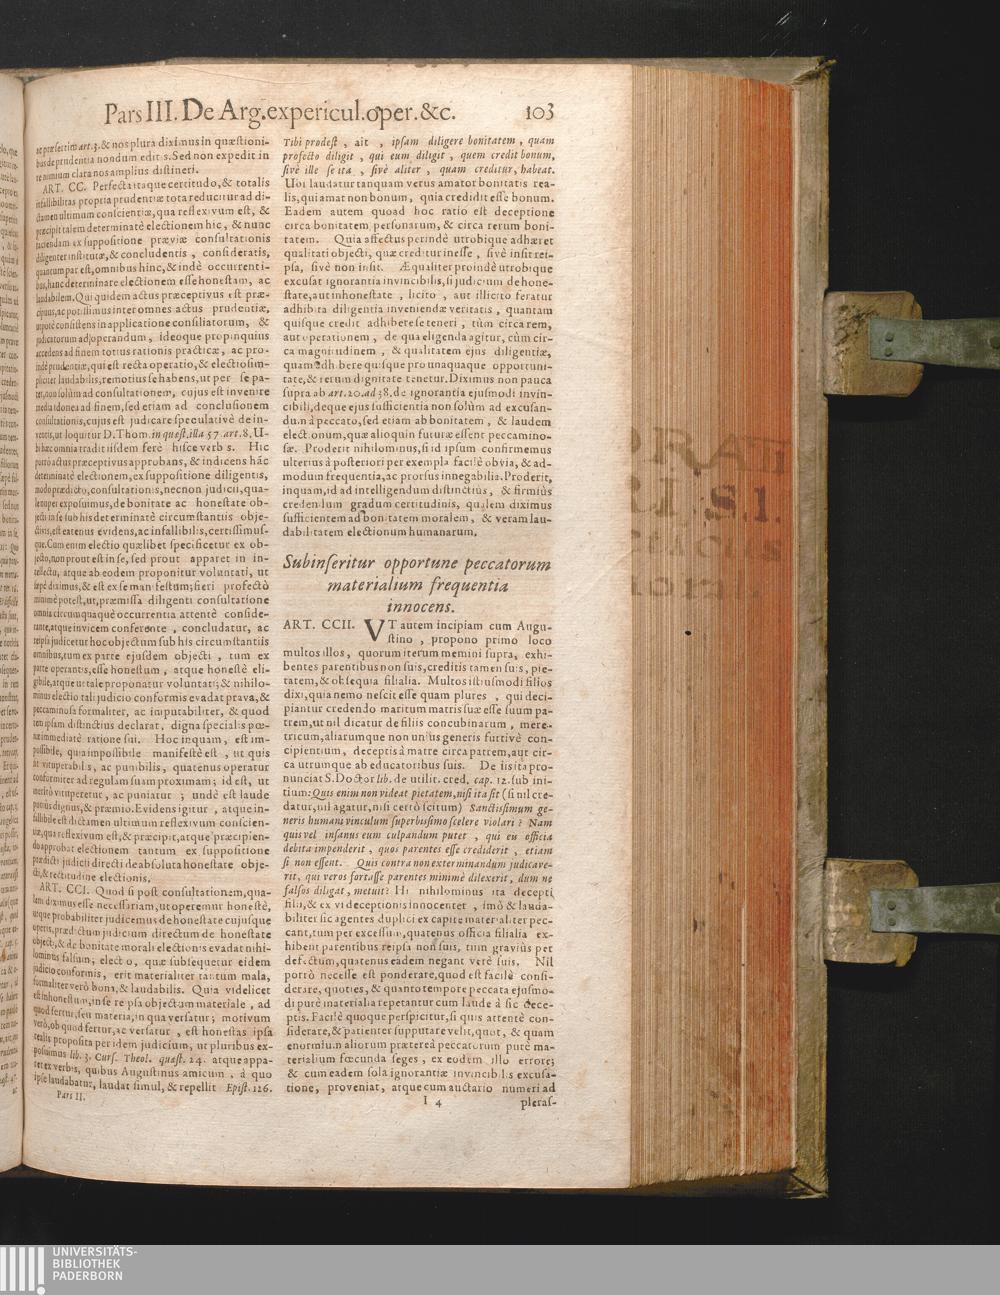 Pars III. De Arg. expericul. oper. &c. 103
ac præsertim art. 3. & nos plura diximus in quæstioni-
bus de prudentia nondum editis. Sed non expedit in
re nimium clara nos amplius distineri.
ART. CC. Perfecta itaque certitudo, & totalis
infallibilitas propria prudentiæ tota reducitur ad di-
ctamen ultimum conscientiæ, qua reflexivum est, &
præcipit talem determinatè electionem hic, & nunc
faciendam ex suppositione præviæ consultationis
diligenter institutæ, & concludentis, consideratis,
quantum par est, omnibus hinc, & indè occurrenti-
bus, hanc determinare electionem esse honestam, ac
laudabilem. Qui quidem actus præceptivus est præ-
cipuus, ac potissimus inter omnes actus prudentiæ,
utpotè consistens in applicatione consiliatorum, &
judicatorum ad operandum, ideoque propinquius
accedens ad finem totius rationis practicæ, ac pro-
indè prudentiæ, qui est recta operatio, & electio sim-
pliciter laudabilis, remotius se habens, ut per se pa-
tet, non solùm ad consultationem, cujus est invenire
media idonea ad finem, sed etiam ad conclusionem
consultationis, cujus est judicare speculativè de in-
ventis, ut loquitur D. Thom. in quæst. illa 57. art. 8. U-
bi hæc omnia tradit iisdem ferè hisce verbis. Hic
porrò actus præceptivus approbans, & indicens hãc
determinatè electionem, ex suppositione diligentis,
modo prædicto, consultationis, necnon judicii, qua-
le nuper exposuimus, de bonitate ac honestate ob-
jecti in se sub his determinatè circumstantiis obje-
ctivis, est eatenus evidens, ac infallibilis, certissimus-
que. Cum enim electio quælibet specificetur ex ob-
jecto, non prout est in se, sed prout apparet in in-
tellectu, atque ab eodem proponitur voluntati, ut
sæpè diximus, & est ex se manifestum; fieri profectò
minimè potest, ut, præmissa diligenti consultatione
omnia circumquaquè occurrentia attentè conside-
rante, atque invicem conferente, concludatur, ac
reipsa judicetur hoc objectum sub his circumstantiis
omnibus, tum ex parte ejusdem objecti, tum ex
parte operantis, esse honestum, atque honestè eli-
gibile, atque ut tale proponatur voluntati; & nihilo-
minus electio tali judicio conformis evadat prava, &
peccaminosa formaliter, ac imputabiliter, & quod
rem ipsam distinctius declarat, digna specialis pœ-
næ immediatè ratione sui. Hoc inquam, est im-
possibile, quia impossibile manifestè est, ut quis
sit vituperabilis, ac punibilis, quatenus operatur
conformiter ad regulam suam proximam; id est, ut
meritò vituperetur, ac puniatur; undè est laude
potius dignus, & præmio. Evidens igitur, atque in-
fallibile est dictamen ultimum reflexivum conscien-
tiæ, qua reflexivum est, & præcipit, atque præcipien-
do approbat electionem tantum ex suppositione
prædicti judicii directi de absoluta honestate obje-
cti, & rectitudine electionis.
ART. CCI. Quod si post consultationem, qua-
lem diximus esse necessariam, ut operemur honestè,
utque probabiliter judicemus de honestate cujusque
operis, prædictum judicium directum de honestate
objecti, & de bonitate morali electionis evadat nihi-
lominus falsum; electio, quæ subsequetur eidem
judicio conformis, erit materialiter tantum mala,
formaliter verò bona, & laudabilis. Quia videlicet
est inhonestum, in se re ipsa objectum materiale, ad
quod fertur, seu materia, in qua versatur; motivum
verò, ob quod fertur, ac versatur, est honestas ipsa
realis proposita per idem judicium, ut pluribus ex-
posuimus lib. 3. Curs. Theol. quæst. 24. atque appa-
ret ex verbis, quibus Augustinus amicum, à quo
ipse laudabatur, laudat simul, & repellit Epist. 126.
Pars II.
Tibi prodest, ait, ipsam diligere bonitatem, quam
profecto diligit, qui eum diligit, quem credit bonum,
sivè ille se ita, sivè aliter, quam creditur, habeat.
Ubi laudatur tanquam verus amator bonitatis rea-
lis, qui amat non bonum, quia credidit esse bonum.
Eadem autem quoad hoc ratio est deceptione
circa bonitatem personarum, & circa rerum boni-
tatem. Quia affectus perindè utrobique adhæret
qualitati objecti, quæ creditur inesse, sivè insit rei-
psa, sivè non insit. Æqualiter proindè utrobique
excusat ignorantia invincibilis, si judicium de hone-
state, aut inhonestate, licito, aut illicito feratur
adhibita diligentia inveniendæ veritatis, quantam
quisque credit adhibere se teneri, tùm circa rem,
aut operationem, de qua eligenda agitur, cùm cir-
ca magnitudinem, & qualitatem ejus diligentiæ,
quam adhibere quisque pro unaquaque opportuni-
tate, & rerum dignitate tenetur. Diximus non pauca
supra ab art. 20. ad 38. de ignorantia ejusmodi invin-
cibili, deque ejus sufficientia non solùm ad excusan-
dum à peccato, sed etiam ab bonitatem, & laudem
electionum, quæ alioquin futuræ essent peccamino-
sæ. Proderit nihilominus, si id ipsum confirmemus
ulterius à posteriori per exempla facilè obvia, & ad-
modum frequentia, ac prorsus innegabilia. Proderit,
inquam, id ad intelligendum distinctiùs, & firmiùs
credendum gradum certitudinis, qualem diximus
sufficientem ad bonitatem moralem, & veram lau-
dabilitatem electionum humanarum.
Subinseritur opportune peccatorum
materialium frequentia
innocens.
ART. CCII. VT autem incipiam cum Augu-
stino, propono primo loco
multos illos, quorum iterum memini supra, exhi-
bentes parentibus non suis, creditis tamen suis, pie-
tatem, & obsequia filialia. Multos istiusmodi filios
dixi, quia nemo nescit esse quam plures, qui deci-
piantur credendo maritum matris suæ esse suum pa-
trem, ut nil dicatur de filiis concubinarum, mere-
tricum, aliarumque non unius generis furtivè con-
cipientium, deceptis à matre circa patrem, aut cir-
ca utrumque ab educatoribus suis. De iis ita pro-
nunciat S. Doctor lib. de utilit. cred. cap. 12. sub ini-
tium: Quis enim non videat pietatem, nisi ita sit (si nil cre-
datur, nil agatur, nisi certò scitum) Sanctissimum ge-
neris humani vinculum superbissimo scelere violari? Nam
quis vel insanus eum culpandum putet, qui eis officia
debita impenderit, quos parentes esse crediderit, etiam
si non essent. Quis contra non exterminandum judicave-
rit, qui veros fortasse parentes minimè dilexerit, dum ne
falsos diligat, metuit? Hi nihilominus ita decepti
filii, & ex vi deceptionis innocenter, imò & lauda-
biliter sic agentes duplici ex capite materialiter pec-
cant, tum per excessum, quatenus officia filialia ex-
hibent parentibus reipsa non suis, tum graviùs per
defectum, quatenus eadem negant verè suis. Nil
porrò necesse est ponderare, quod est facilè consi-
derare, quoties, & quanto tempore peccata ejusmo-
di purè materialia repetantur cum laude à sic dece-
ptis. Facilè quoque perspicitur, si quis attentè con-
siderate, & patienter supputare velit, quot, & quam
enormium aliorum prætereà peccatorum purè ma-
terialium fœcunda seges, ex eodem illo errore;
& cum eadem sola ignorantiæ invincibilis excusa-
tione, proveniat, atque cum auctario numeri ad
I 4 pleras-
UNIVERSITÄTS-
BIBLIOTHEK
PADERBORN